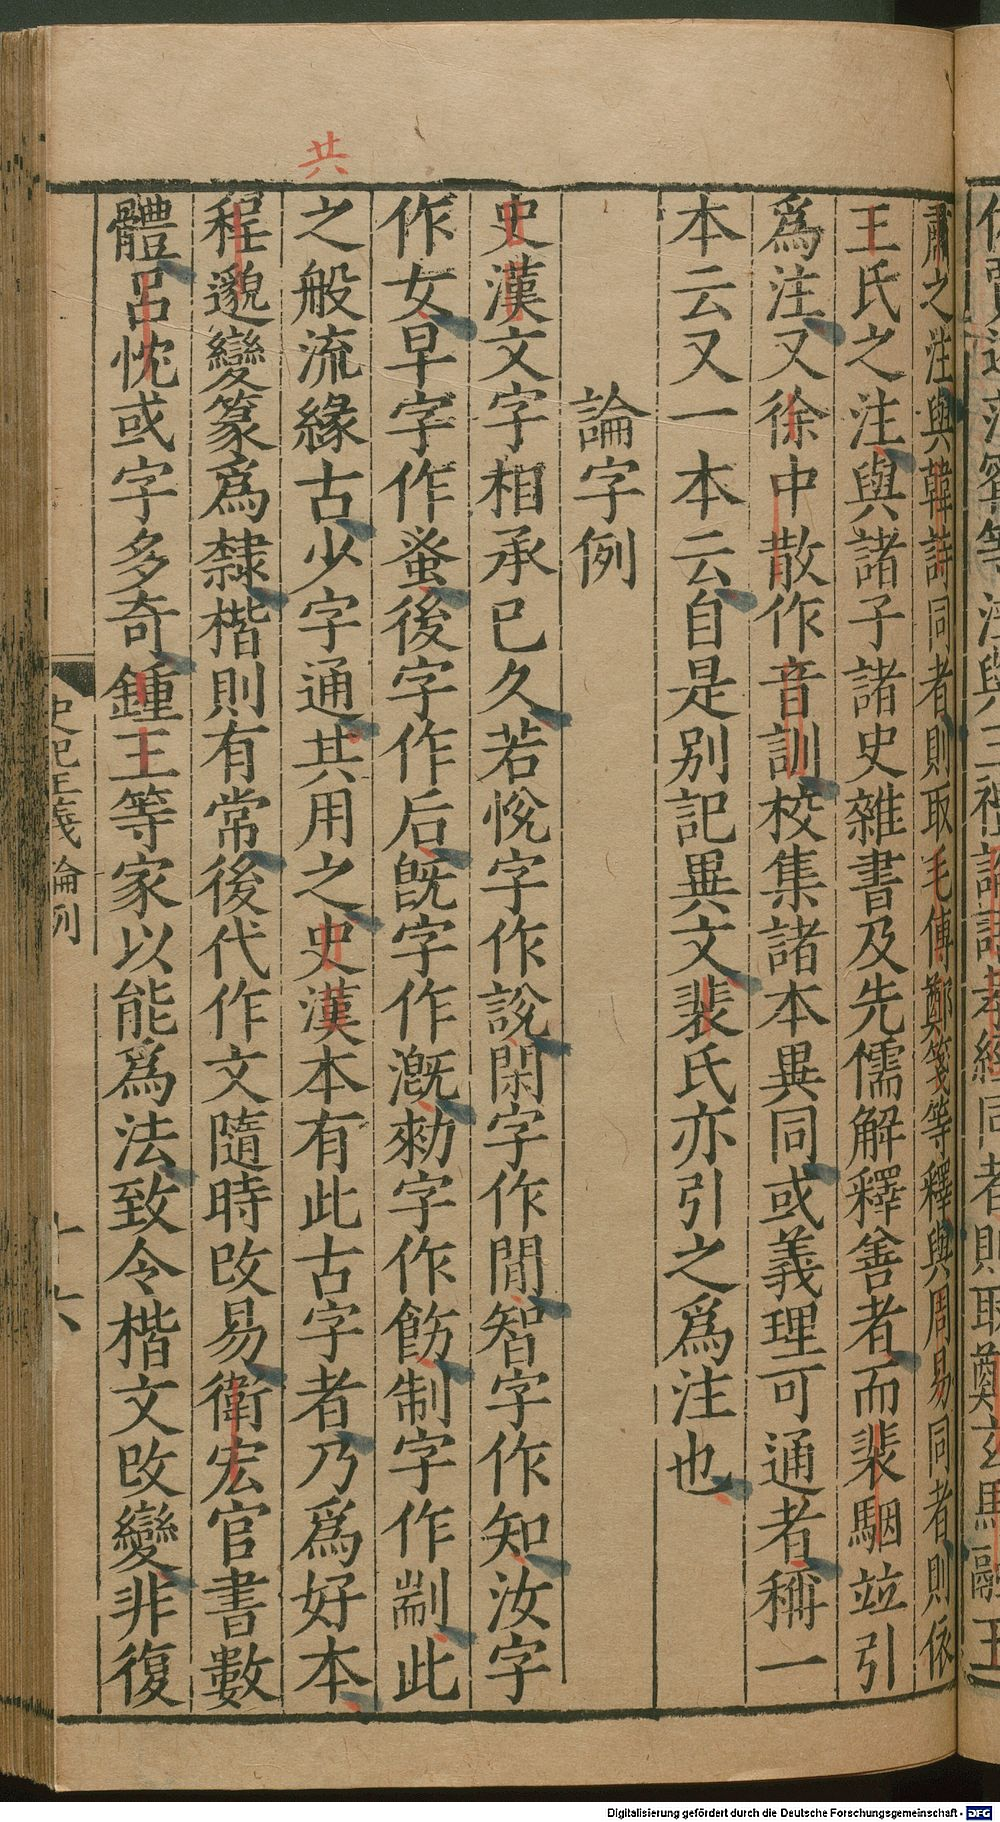 共
肅之注與韓詩同者則取毛傅鄭箋等釋與周易同者則依
王氏之注與諸子諸史雜書及先儒解釋善者而裴駰竝引
爲注又徐中散作音訓校集諸本異同或義理可通者稱一
本云又一本云自是別記異文裴氏亦引之爲注也
論字例
史漢文字相承已久若悅字作說閑字作閒智字作知汝字
作女早字作蚤後字作后旣字作漑勑字作飭制字作剬此
之般流緣古少字通共用之史漢本有此古字者乃爲好本
程邈變篆爲隸楷則有常後代作文隨時改易衛宏官書數
體呂忱或字多奇鍾王等家以能爲法致令楷文改變非復
史記正義論例
十六
Digitalisierung gefördert durch die Deutsche Forschungsgemeinschaft - DFG